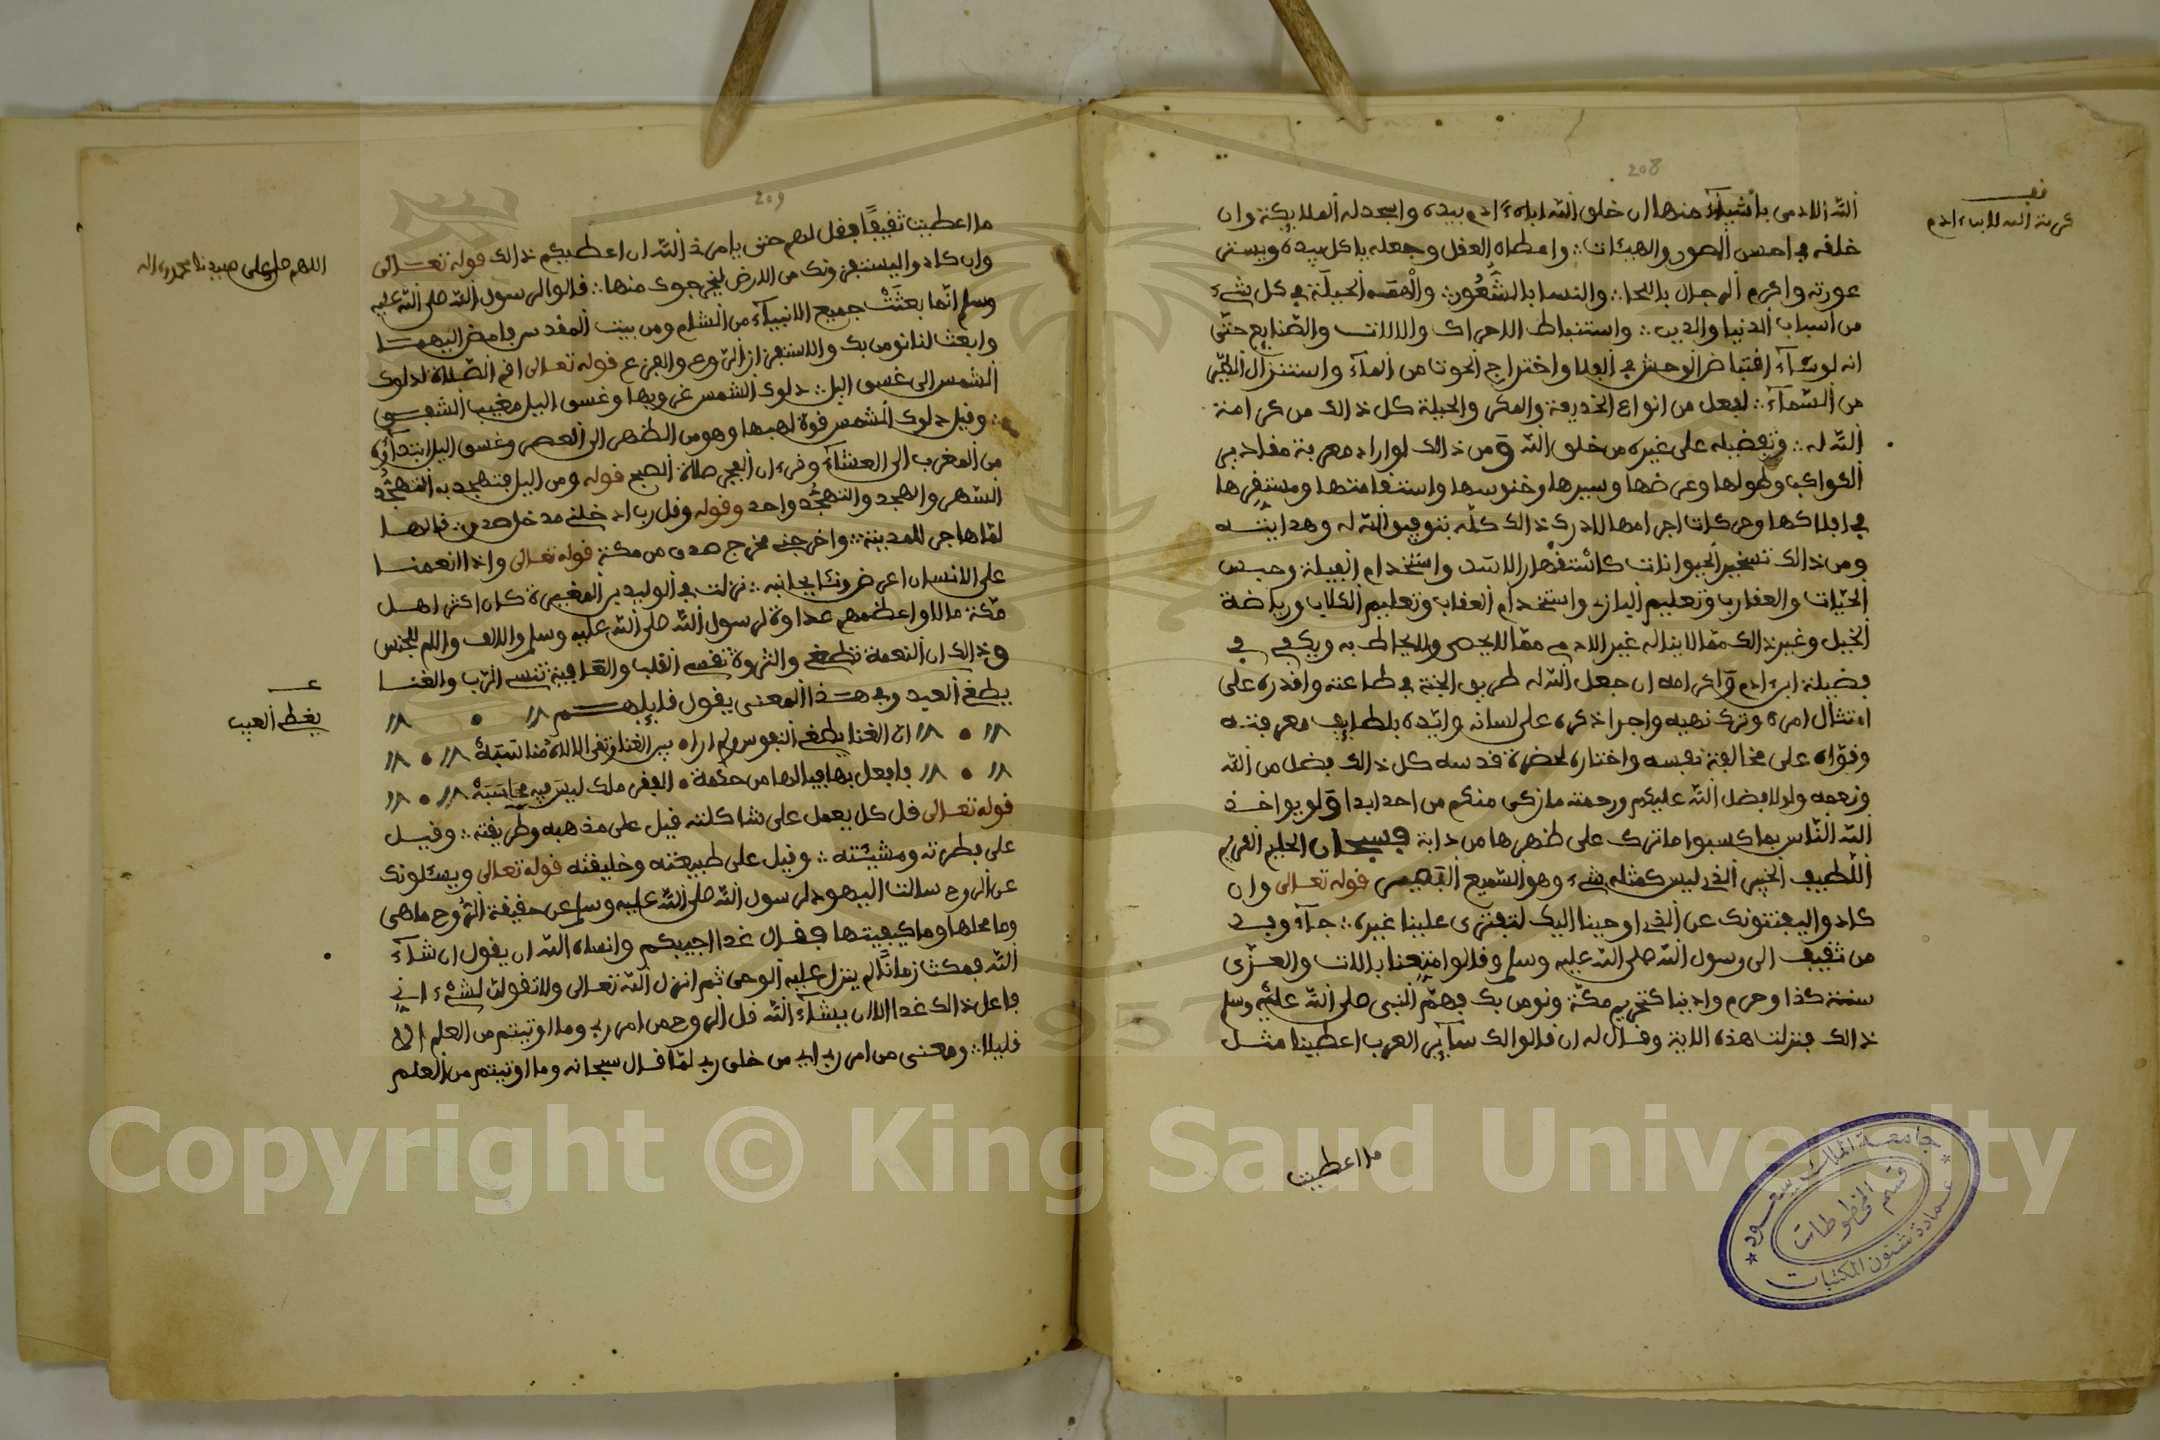 208
الله الادمي باشياء منها ان خلق الله اباه ءادم بيده واسجد له الملايكة وان
خلقه في احسن الصور والهيئات ∴ واعطاه العقل وجعله ياكل بيده ويستر
عورته واكرم الرجال باللحا ∴ والنسا بالشعور ∴ والهمه الحيلة في كل شيء
من اسباب الدنيا والدين ∴ واستنباط الادراك والالات والصنايع حتى
انه لو شاء اقتناص الوحش في الفلا واختراج الحوت من الماء واستنزال الطير
من السماء ∴ لفعل من انواع الخديعة والمكر والحيلة كل ذالك من كرامة
الله له ∴ وتفضيله على غيره من خلق الله ومن ذالك لو اراد معرفة مقادير
الكواكب وطولها وعرضها وسيرها وخنوسها واستقامتها ومستقرها
في افلاكها وحركات اجرامها لادرك ذالك كله بتوفيق الله له وهدايته
ومن ذالك تسخير الحيوانات كاستقهار الاسد واستخدام الفيلة وحبس
الحيات والعقارب وتعليم البازي واستخدام العقاب وتعليم الكلاب ورياضة
الخيل وغير ذالك مما لا يناله غير الادمي مما لا يحصى ولا يحاط به ويكفي في
فضيلة ابن ءادم واكرامه ان جعل الله له طريق الجنة في طاعته واقدره على
امتثال امره وترك نهيه واجرا ذكره على لسانه وايده بلطايف معرفته
وقواه على مخالفة نفسه واختاره لحضرة قدسه كل ذالك بفضل من الله
ونعمه ولولا فضل الله عليكم ورحمته ما زكى منكم من احد ابدا ولو يواخذ
الله الناس بما كسبوا ما ترك على ظهرها من دابة فسبحان الحليم الكريم
اللطيف الخبير الذي ليس كمثله شيء وهو السميع البصير قوله تعالى وان
كادوا ليفتنونك عن الذي اوحينا اليك لتفتري علينا غيره ∴ جاء وفد
من ثقيف الى رسول الله صلى الله عليه وسلم وقالوا متعنا باللات والعزى
سنة كذا وحرم وادينا كتحريم مكة ونومن بك فهم النبي صلى الله عليه وسلم
ذالك فنزلت هذه الاية وقال له ان قالوا لك ساير العرب اعطيتنا مثل
ما اعطيت
كرمة الله لابناء ادم
جامعة الملك سعود
قسم المخطوطات
عمادة شئون المكتبات
209
ما اعطيت ثقيفا فقل لهم حتى يامرني الله ان اعطيكم ذالك قوله تعالى
وان كادوا ليستفزونك من الارض ليخرجوك منها ∴ قالوا لرسول الله صلى الله عليه
وسلم انما بعثت جميع الانبياء من الشام ومن بيت المقدس فامض اليهما
وابعث لنا نومن بك والاستفزاز الروع والفزع قوله تعالى اقم الصلاة لدلوك
الشمس الى غسق اليل ∴ دلوك الشمس غروبها وغسق اليل مغيب الشفق
∴ وقيل دلوك الشمس قوة لهبها وهو من الظهر الى العصر وغسق اليل ابتداؤه
من المغرب الى العشاء وقرءان الفجر صلاة الصبح قوله ومن اليل فتهجد به التهجد
السهر والهجد والتهجد واحد وقوله وقل رب ادخلني مدخل صدق ∴ قالها
لما هاجر للمدينة ∴ واخرجني مخرج صدق من مكة قوله تعالى واذا انعمنا
على الانسان اعرض ونئا بجانبه ∴ نزلت في الوليد بن المغيرة كان اكثر اهل
مكة مالا واعظمهم عداوة لرسول الله صلى الله عليه وسلم والالف واللام للجنس
وذالك ان النعمة تطغي والثروة تقسي القلب والعافية تنسي الرب والغنا
يطغي العبد وفي هذا المعنى يقول قايلهم
ان الغنا يطغي النفوس ولم ارا ه بين الغنا وتقى الاله مناسبة
فافعل بها فيا لها من حكمة • الفقر ملك ليس فيه محاسبة
قوله تعالى قل كل يعمل على شاكلته قيل على مذهبه وطريقته ∴ وقيل
على فطرته ومشيئته ∴ وقيل على طبيعته وخليقته قوله تعالى ويسئلونك
عن الروح سالت اليهود لرسول الله صلى الله عليه وسلم عن حقيقة الروح ما هي
وما محلها وما كيفيتها فقال غدا اجيبكم وانساه الله ان يقول ان شاء
الله فمكث زمانا لم ينزل عليه الوحي ثم انزل الله تعالى ولا تقولن لشيء اني
فاعل ذالك غدا الا ان يشاء الله قل الروح من امر ربي وما اوتيتم من العلم الا
قليلا ∴ ومعنى من امر ربي اي من خلق ربي لما قال سبحانه وما اوتيتم من العلم
اللهم صل على سيدنا محمد وءاله
يغطي العيب
Copyright © King Saud University
1957